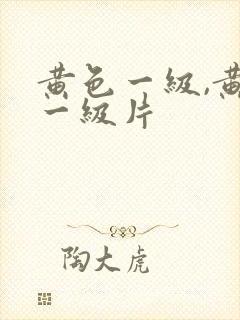 黄色一級,黄
一級片
陶大虎